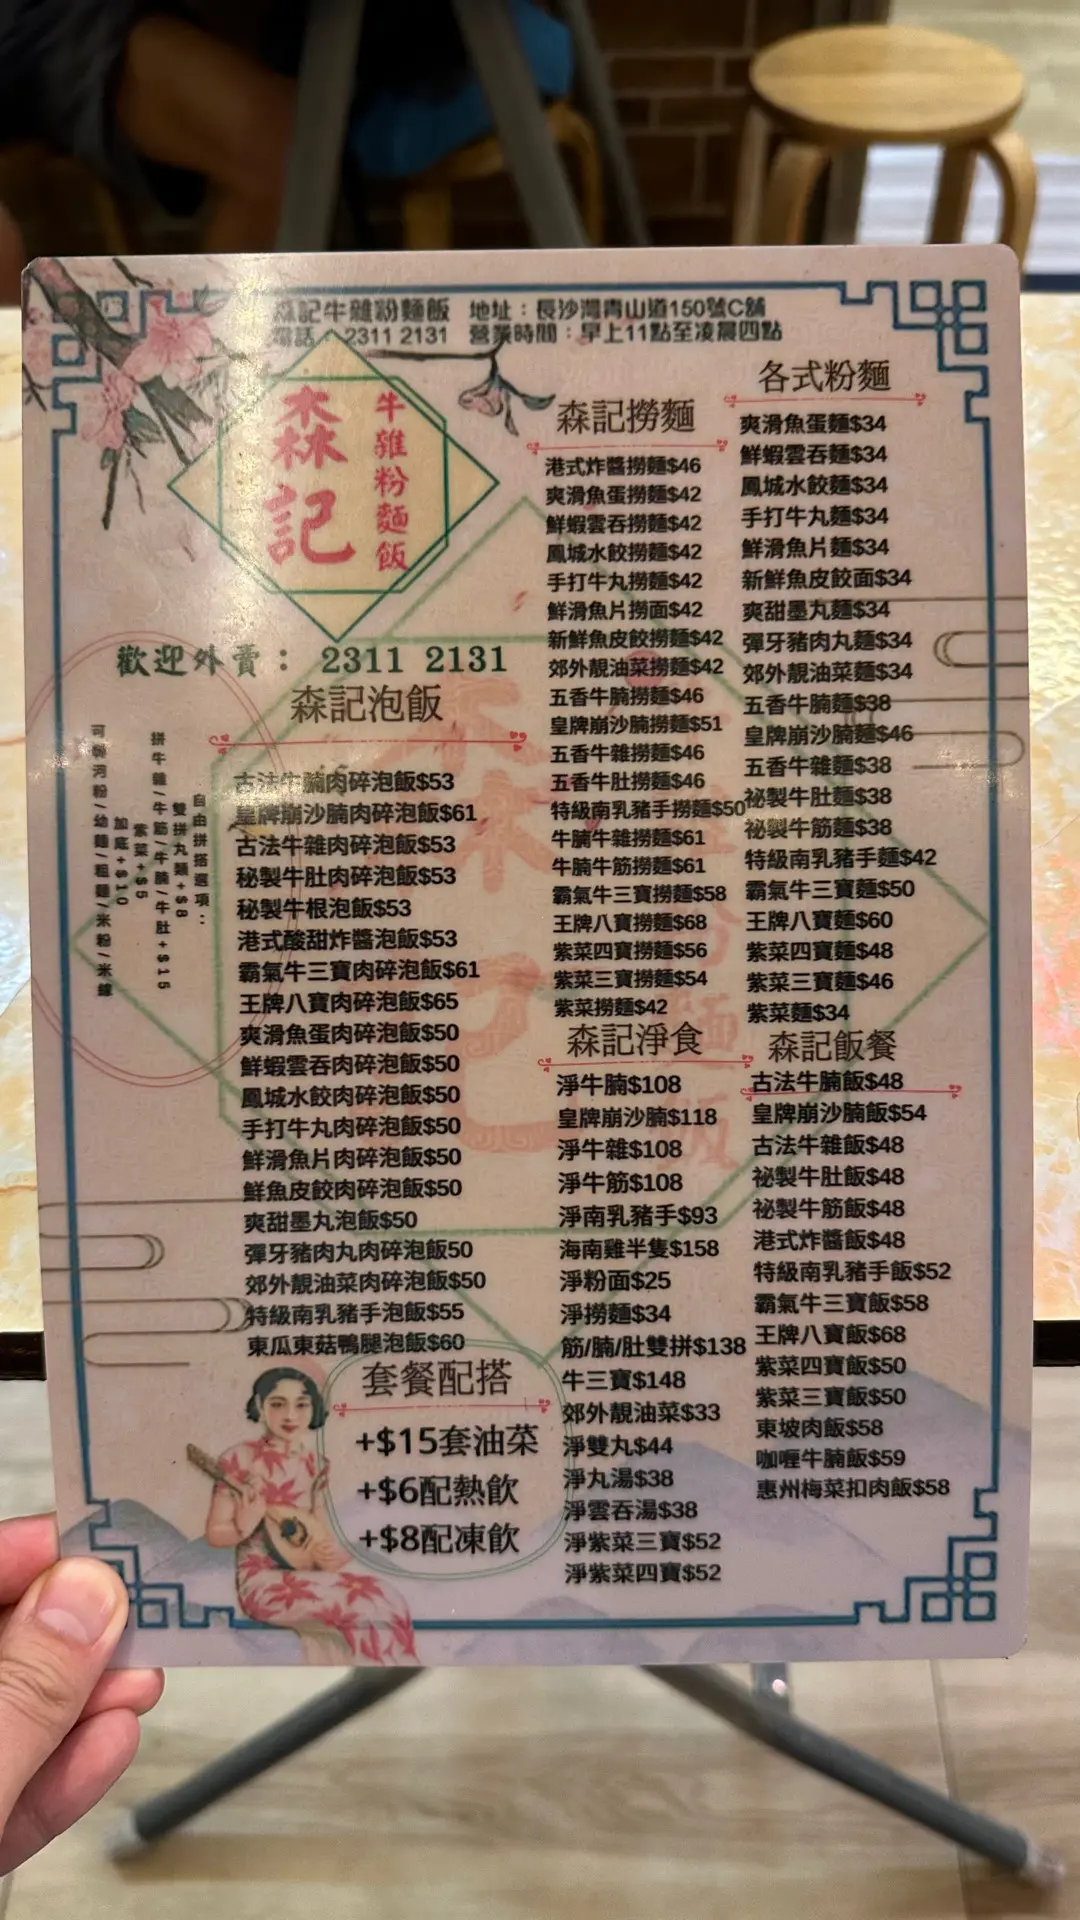 森記牛雜粉麵飯 地址：長沙灣青山道150號C舖
電話：2311 2131 營業時間：早上11點至凌晨四點
森記
牛雜粉麵飯
歡迎外賣： 2311 2131
自由拼搭選項：
雙拼丸類+$8
拼牛雜/牛筋/牛腩/牛肚+$15
紫菜+$5
加底+$10
可製河粉/幼麵/粗麵/米粉/米線
森記泡飯
古法牛腩肉碎泡飯$53
皇牌崩沙腩肉碎泡飯$61
古法牛雜肉碎泡飯$53
秘製牛肚肉碎泡飯$53
秘製牛根泡飯$53
港式酸甜炸醬泡飯$53
霸氣牛三寶肉碎泡飯$61
王牌八寶肉碎泡飯$65
爽滑魚蛋肉碎泡飯$50
鮮蝦雲吞肉碎泡飯$50
鳳城水餃肉碎泡飯$50
手打牛丸肉碎泡飯$50
鮮滑魚片肉碎泡飯$50
鮮魚皮餃肉碎泡飯$50
爽甜墨丸泡飯$50
彈牙豬肉丸肉碎泡飯50
郊外靚油菜肉碎泡飯$50
特級南乳豬手泡飯$55
東瓜東菇鴨腿泡飯$60
套餐配搭
+$15套油菜
+$6配熱飲
+$8配凍飲
森記撈麵
港式炸醬撈麵$46
爽滑魚蛋撈麵$42
鮮蝦雲吞撈麵$42
鳳城水餃撈麵$42
手打牛丸撈麵$42
鮮滑魚片撈面$42
新鮮魚皮餃撈麵$42
郊外靚油菜撈麵$42
五香牛腩撈麵$46
皇牌崩沙腩撈麵$51
五香牛雜撈麵$46
五香牛肚撈麵$46
特級南乳豬手撈麵$50
牛腩牛雜撈麵$61
牛腩牛筋撈麵$61
霸氣牛三寶撈麵$58
王牌八寶撈麵$68
紫菜四寶撈麵$56
紫菜三寶撈麵$54
紫菜撈麵$42
森記淨食
淨牛腩$108
皇牌崩沙腩$118
淨牛雜$108
淨牛筋$108
淨南乳豬手$93
海南雞半隻$158
淨粉面$25
淨撈麵$34
筋/腩/肚雙拼$138
牛三寶$148
郊外靚油菜$33
淨雙丸$44
淨丸湯$38
淨雲吞湯$38
淨紫菜三寶$52
淨紫菜四寶$52
各式粉麵
爽滑魚蛋麵$34
鮮蝦雲吞麵$34
鳳城水餃麵$34
手打牛丸麵$34
鮮滑魚片麵$34
新鮮魚皮餃面$34
爽甜墨丸麵$34
彈牙豬肉丸麵$34
郊外靚油菜麵$34
五香牛腩麵$38
皇牌崩沙腩麵$46
五香牛雜麵$38
祕製牛肚麵$38
祕製牛筋麵$38
特級南乳豬手麵$42
霸氣牛三寶麵$50
王牌八寶麵$60
紫菜四寶麵$48
紫菜三寶麵$46
紫菜麵$34
森記飯餐
古法牛腩飯$48
皇牌崩沙腩飯$54
古法牛雜飯$48
祕製牛肚飯$48
祕製牛筋飯$48
港式炸醬飯$48
特級南乳豬手飯$52
霸氣牛三寶飯$58
王牌八寶飯$68
紫菜四寶飯$50
紫菜三寶飯$50
東坡肉飯$58
咖喱牛腩飯$59
惠州梅菜扣肉飯$58